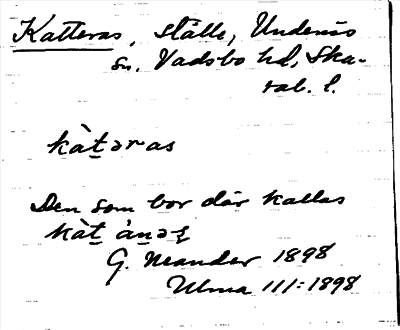 Katteras, ställe, Undenäs
sn. Vadsbo hd, Ska-
rab. l.
kàt̠əras
Den som bor där kallas
kàt̠
G. Neander 1898
1898